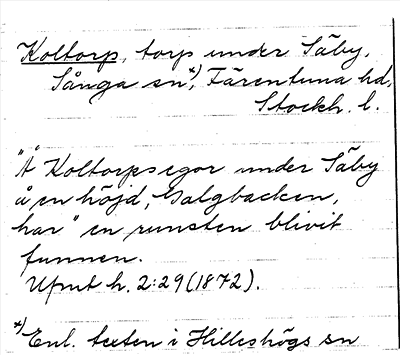 Koltorp, torp under Säby,
Sånga sn*), Färentuna hd,
Stockh. l.
"Å Koltorpsegor under Säby
å en höjd, Galgbacken,
har" en runsten blivit
funnen.
Upmt h. 2:29 (1872).
*) Enl. texten i Hilleshögs sn